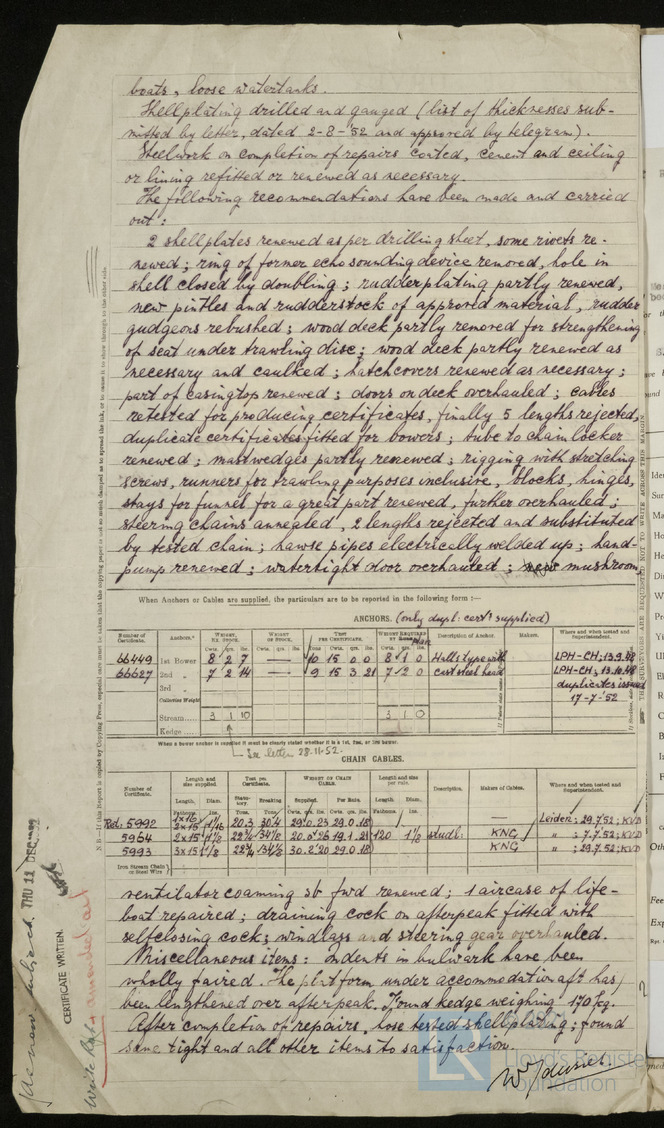 boats, loose watertanks.
Shellplating drilled and gauged (list of thicknesses sub-
mitted by letter, dated 2-8-'52 and approved by telegram).
Steelwork on completion of repairs coated, cement and ceiling
or lining refitted or renewed as necessary.
The following recommendations have been made and carried
out:
2 shellplates renewed as per drilling sheet, some rivets re-
newed; ring of former echosounding device removed, hole in
shell closed by doubling; rudderplating partly renewed,
new pintles and rudderstock of approved material, rudder
gudgeons rebushed; wood deck partly removed for strengthening
of seat under trawling disc; wood deck partly renewed as
necessary and caulked; hatchcovers renewed as necessary;
part of casingtop renewed; doors on deck overhauled; cables
retested for producing certificates, finally 5 lengths rejected,
duplicate certificates fitted for bowers; tube to chain locker
renewed; mastwedges partly renewed; rigging with stretching
screws, runners for trawling purposes inclusive, blocks, hinges,
stays for funnel for a great part renewed, further overhauled;
steering chains annealed, 2 lengths rejected and substituted
by tested chain; hawse pipes electrically welded up; hand-
pump renewed; watertight door overhauled; mushroom
When Anchors or Cables are supplied, the particulars are to be reported in the following form :—
ANCHORS. (only dupl: cert. supplied)
Number of Certificate. Anchors. Weight, Ex. Stock Weight of Stock. Test per Certificate. Weight Required by Rules Description of Anchor. Makers. Where and when tested and Superintendent.
66449 1st Bower 8 2 7 — 10 15 0 0 8 1 0 Halls type with LPH-CH; 13.9.48
66627 2nd „ 7 2 14 — 9 15 3 21 7 2 0 cast steel head LPH-CH; 13.10.48
3rd „ duplicates issued
Collective Weight 17-7-'52
Stream 3 1 10 3 1 0
Kedge
When a bower anchor is supplied it must be clearly stated whether it is a 1st, 2nd, or 3rd bower.
See letter 28.11.52.
CHAIN CABLES.
Number of Certificate. Length and size supplied. Test per Certificate. Weight of Chain Cable. Length and size per rule. Description. Makers of Cables. Where and when tested and Superintendent.
Length. Diam. Statutory. Breaking Supplied. Per Rule. Length. Diam.
Rd. 5992 2x15 1 1/16 20.3 30.4 29.0.23 29.0.18 — Leiden; 29.7.52; KVD
5964 2x15 1 1/8 120 1 1/8 studl: KNG „ 7.7.52; KVD
5993 3x15 1 1/8 30.2.20 29.0.18 KNG „ 29.7.52; KVD
Iron Stream Chain or Steel Wire
ventilator coaming sb fwd renewed; 1 aircase of life-
boat repaired; draining cock on afterpeak fitted with
selfclosing cock; windlass and steering gear overhauled.
Miscellaneous items: Indents in bulwark have been
wholly faired. The platform under accommodation aft has
been lengthened over afterpeak. Found kedge weighing 170 kg.
After completion of repairs, hose tested shellplating; found
same tight and all other items to satisfaction.
Lloyd's Register
Foundation
CERTIFICATE WRITTEN.
THU 11 DEC